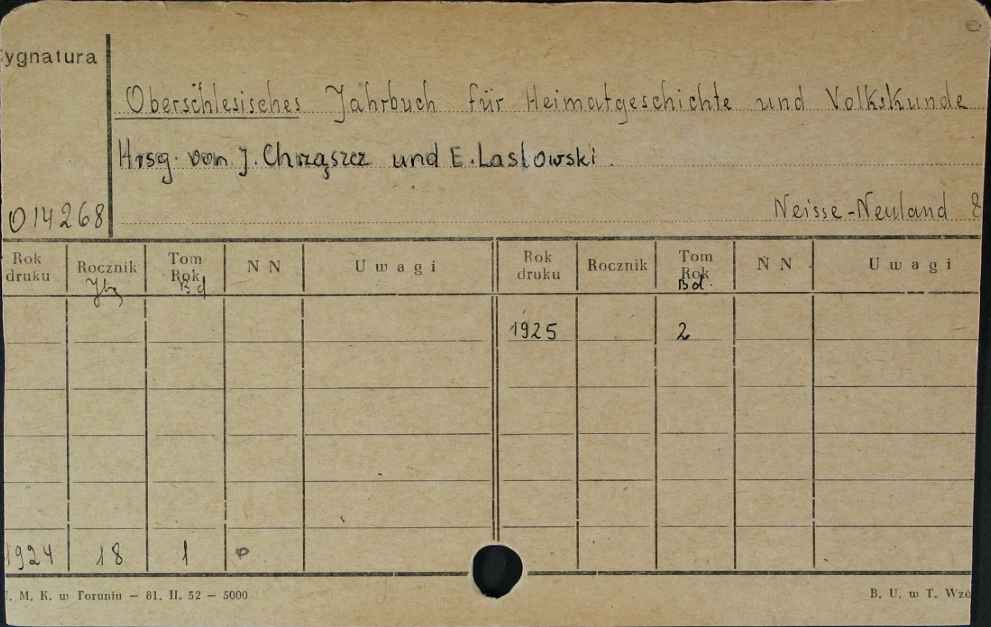 ygnatura
Oberschlesisches Jahrbuch für Heimatgeschichte und Volkskunde
Hrsg. von J. Chrząszcz und E. Laslowski.
014268 Neisse-Neuland
Rok druku Rocznik Jbg Tom Rok Bd N N Uwagi Rok druku Rocznik Tom Rok Bd. N N Uwagi
1925 2
1924 18 1
. M. K. w Toruniu — 81. II. 52 — 5000 B. U. w T. Wzó